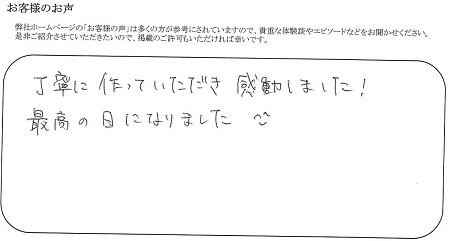 お客様のお声
弊社ホームページの「お客様の声」は多くの方が参考にされていますので、貴重な体験談やエピソードなどをお聞かせください。
是非ご紹介させていただきたいので、掲載のご許可もいただければ幸いです。
丁寧に作っていただき感動しました!
最高の日になりました